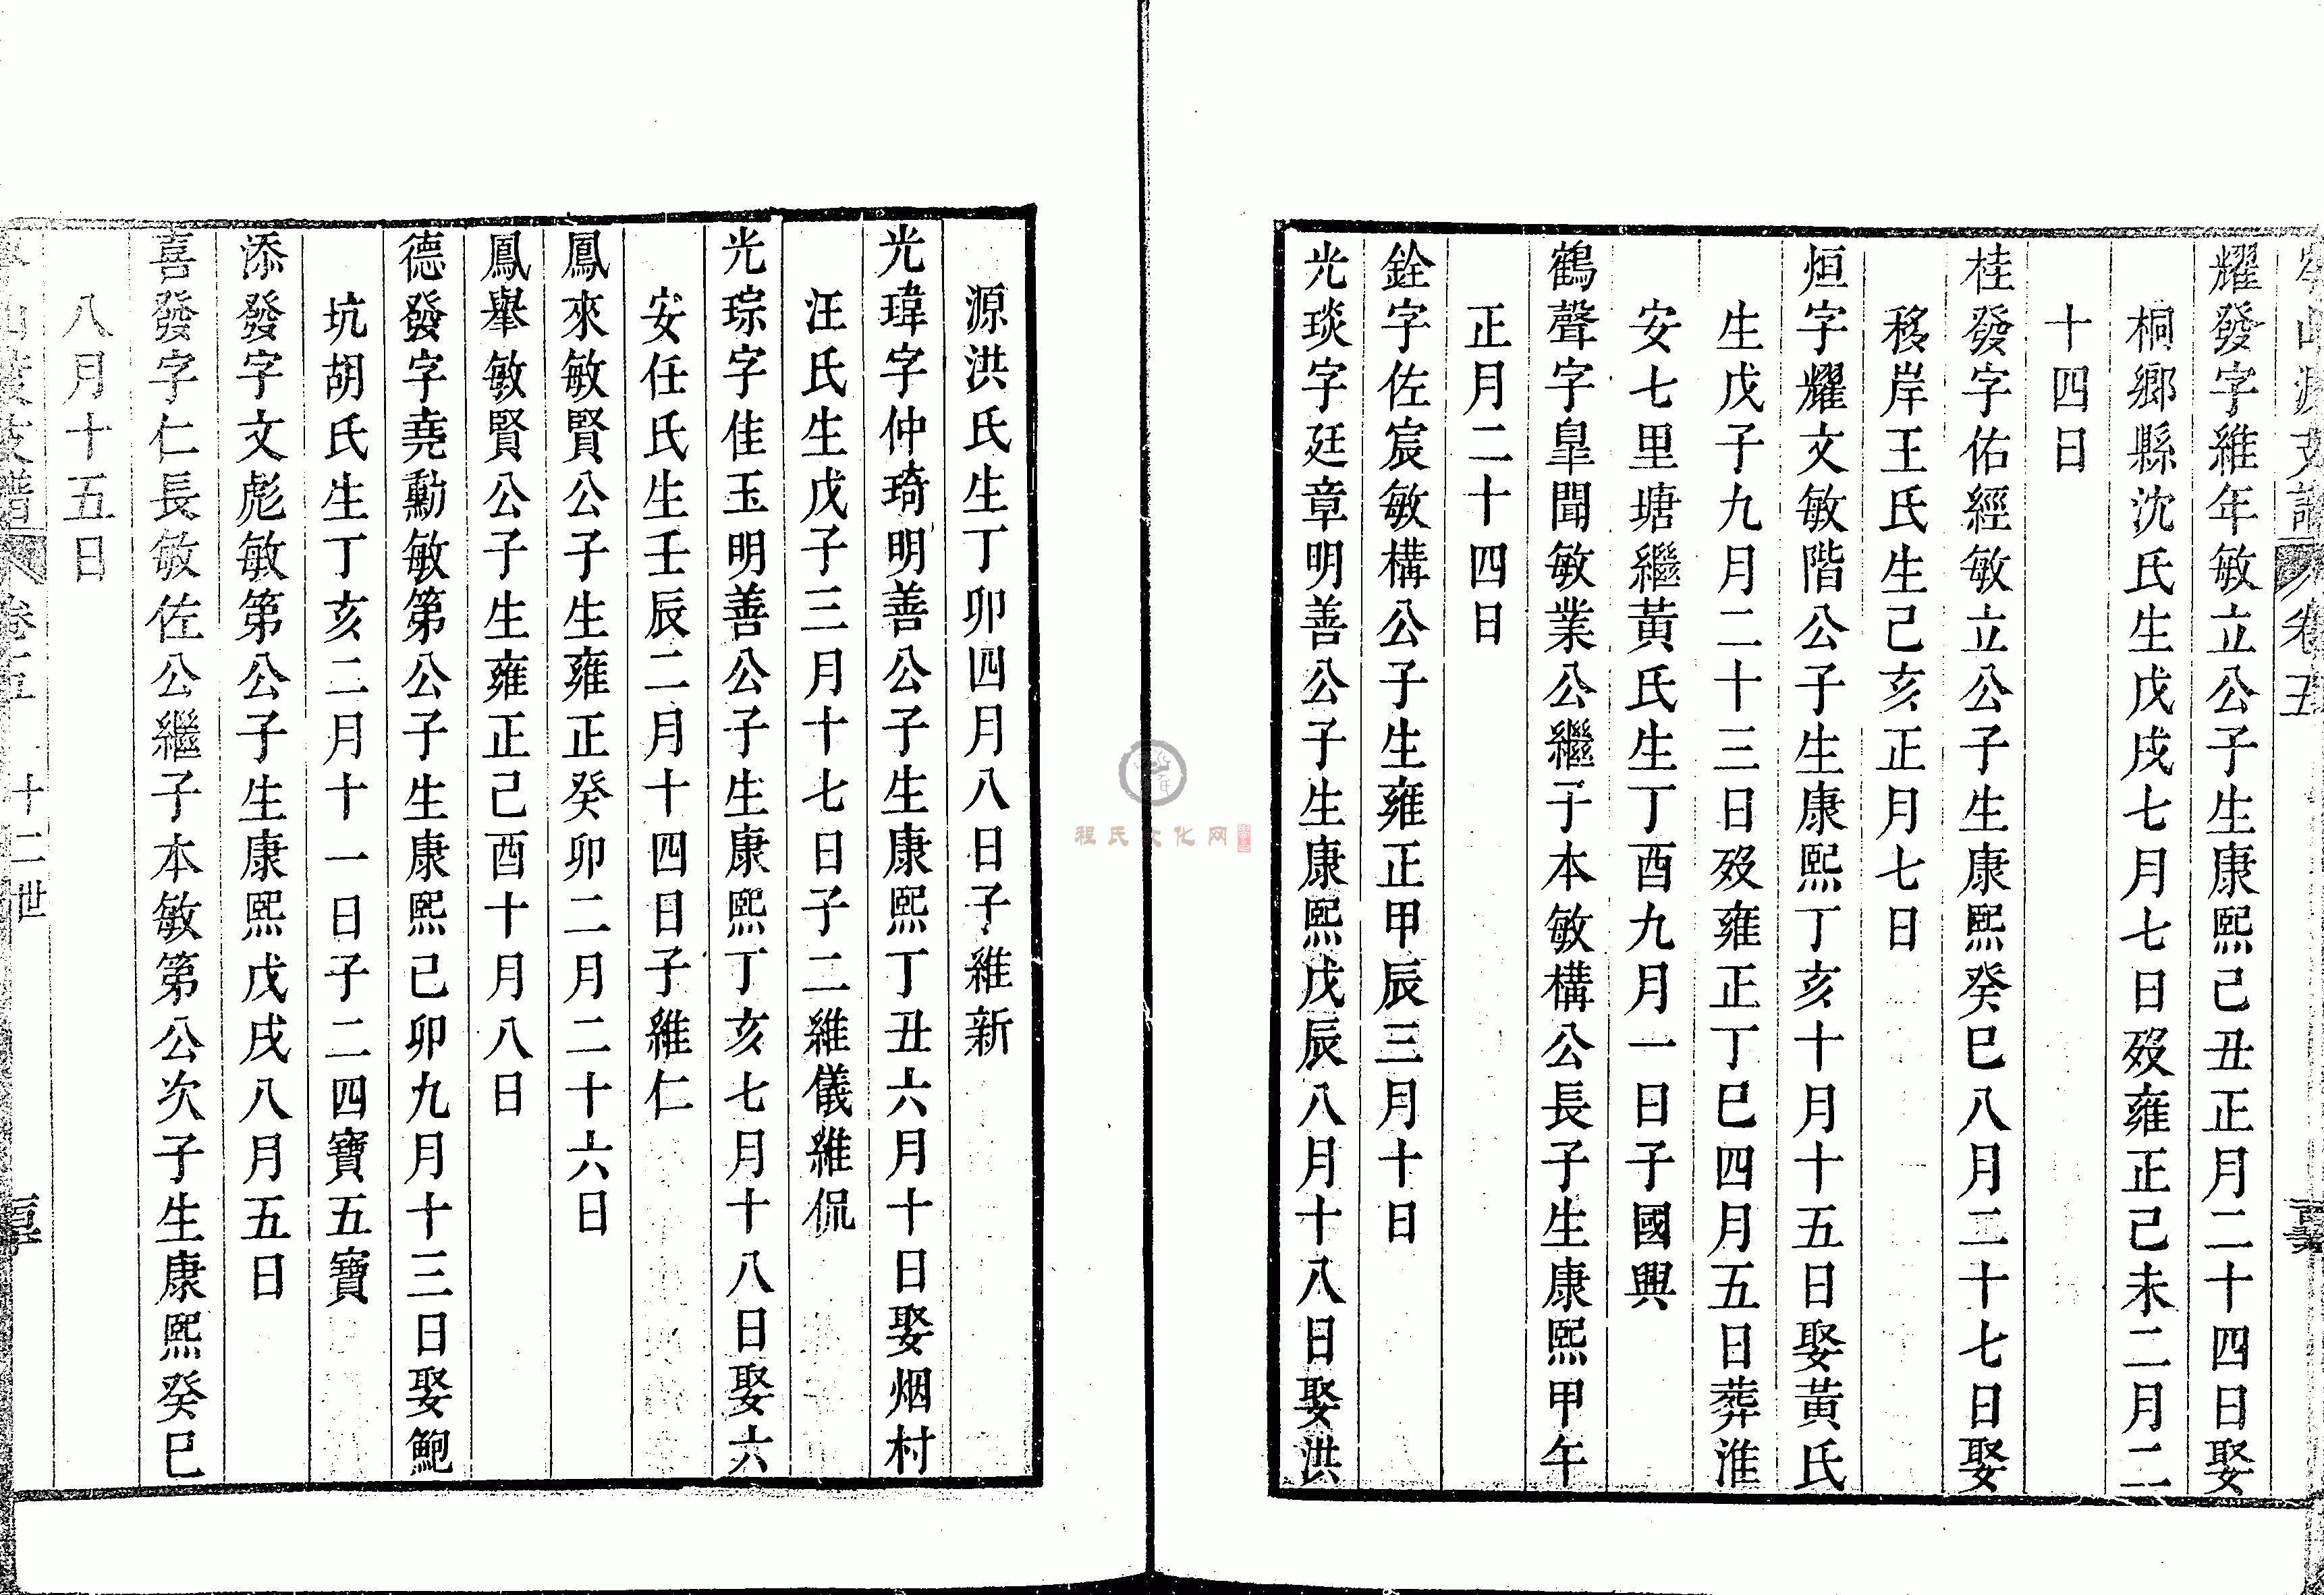 卷五
耀發字維年敏立公子生康熙己丑正月二十四日娶
桐鄉縣沈氏生戊戌七月七日歿雍正己未二月二
十四日
桂發字佑經敏立公子生康熙癸巳八月二十七日娶
移岸王氏生己亥正月七日
烜字耀文敏階公子生康熙丁亥十月十五日娶黃氏
生戊子九月二十三日歿雍正丁巳四月五日葬淮
安七里塘繼黃氏生丁酉九月一日子國興
鶴聲字皐聞敏業公繼子本敏構公長子生康熙甲午
正月二十四日
銓字佐宸敏構公子生雍正甲辰三月十日
光琰字廷章明善公子生康熙戊辰八月十八日娶洪
源洪氏生丁卯四月八日子維新
光瑋字仲琦明善公子生康熙丁丑六月十日娶烟村
汪氏生戊子三月十七日子二維儀維侃
光琮字佳玉明善公子生康熙丁亥七月十八日娶六
安任氏生壬辰二月十四日子維仁
鳳來敏賢公子生雍正癸卯二月二十六日
鳳舉敏賢公子生雍正己酉十月八日
德發字堯勳敏第公子生康熙己卯九月十三日娶鮑
坑胡氏生丁亥二月十一日子二四寶五寶
添發字文彪敏第公子生康熙戊戌八月五日
喜發字仁長敏佐公繼子本敏第公次子生康熙癸巳
八月十五日
支譜 卷五 十二世
程氏文化网